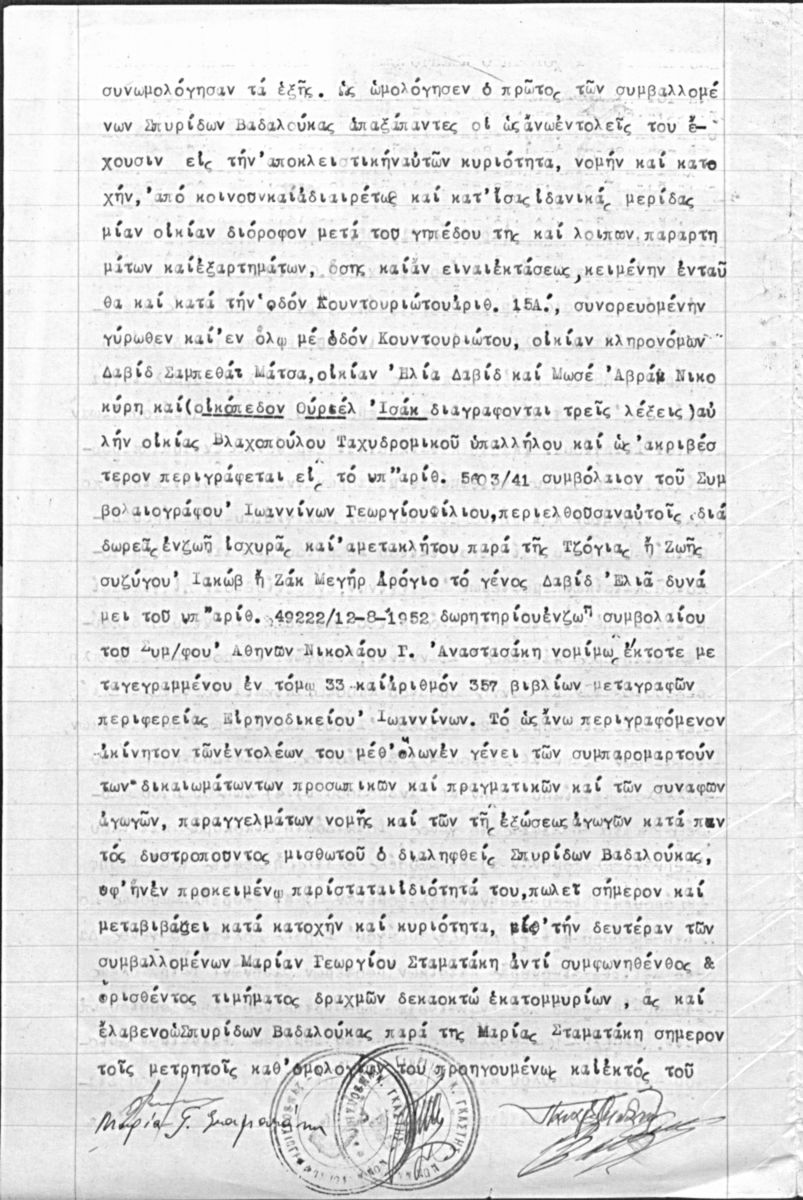 συνωμολόγησαν τά ἑξῆς. Ὡς ὡμολόγησεν ὁ πρῶτος τῶν συμβαλλομέ
νων Σπυρίδων Βαδαλούκας ἁπαξάπαντες οἱ ὡςἄνωἐντολεῖς του ἔ-
χουσιν εἰς τήν'αποκλειστικήναὐτῶν κυριότητα, νομήν καί κατο
χήν,'από κοινοῦκαίἀδιαιρέτως καί κατ'ἴσας ἰδανικάς μερίδας
μίαν οἰκίαν διόροφον μετά τοῦ γηπέδου της καί λοιπῶν παραρτη
μάτων καίἐξαρτημάτων, ὅσης καίἄν εἶναιἐκτάσεως,κειμένην ἐνταῦ
θα καί κατά τήν ὁδόν Κουντουριώτουἀριθ. 15Α΄, συνορευομένην
γύρωθεν καί'εν ὅλῳ μέ ὁδόν Κουντουριώτου, οἰκίαν κληρονόμων
Δαβίδ Σαμπεθάι Μάτσα,οἰκίαν 'Ελία Δαβίδ καί Μωσέ 'Αβράμ Νικο
κύρη καί(οἰκόπεδον Οὐριέλ 'Ισάκ διαγράφονται τρεῖς λέξεις)αὐ
λήν οἰκίας Βλαχοπούλου Ταχυδρομικοῦ ὑπαλλήλου καί ὡς'ακριβέσ
τερον περιγράφεται εἰς τό ὑπ"ἀρίθ. 5603/41 συμβόλαιον τοῦ Συμ
βολαιογράφου' Ιωαννίνων ΓεωργίουΦίλιου,περιελθοῦσαναὐτοῖς διά
δωρεᾶς ἐνζωῇ ἰσχυρᾶς καί'αμετακλήτου παρά τῆς Τζόγιας ἤ Ζωῆς
συζύγου' Ιακώβ ἤ Ζάκ Μεγήρ Ἀρόγιο τό γένος Δαβίδ 'Ελιᾶ δυνά
μει τοῦ ὑπ"ἀρίθ. 49222/12-8-1952 δωρητηρίουἐνζωῇ συμβολαίου
τοῦ Συμ/φου' Αθηνῶν Νικολάου Γ. 'Αναστασάκη νομίμως ἔκτοτε με
ταγεγραμμένου ἐν τόμῳ 33 καίἀριθμόν 357 βιβλίων μεταγραφῶν
περιφερείας Εἰρηνοδικείου' Ιωαννίνων. Τό ὡς ἄνω περιγραφόμενον
ἀκίνητον τῶνἐντολέων του μέθ'ὅλωνἐν γένει τῶν συμπαρομαρτούν
των δικαιωμάτωντων προσωπικῶν καί πραγματικῶν καί τῶν συναφῶν
ἀγωγῶν, παραγγελμάτων νομῆς καί τῶν τῆς ἐξώσεως ἀγωγῶν κατά παν
τός δυστροποῦντος μισθωτοῦ ὁ διαληφθείς Σπυρίδων Βαδαλούκας,
ὑφ'ἥνἐν προκειμένῳ παρίσταταιἰδιότητά του,πωλεῖ σήμερον καί
μεταβιβάζει κατά κατοχήν καί κυριότητα, εἰς τήν δευτέραν τῶν
συμβαλλομένων Μαρίαν Γεωργίου Σταματάκη ἀντί συμφωνηθένθος &
ὁρισθέντος τιμήματος δραχμῶν δεκαοκτώ ἑκατομμυρίων , ἅς καί
ἔλαβενὁΣπυρίδων Βαδαλούκας παρά τῆς Μαρίας Σταματάκη σήμερον
τοῖς μετρητοῖς καθ'ὁμολογίαν του προηγουμένως καίἐκτός τοῦ
Μαρία Γ. Σταματάκη